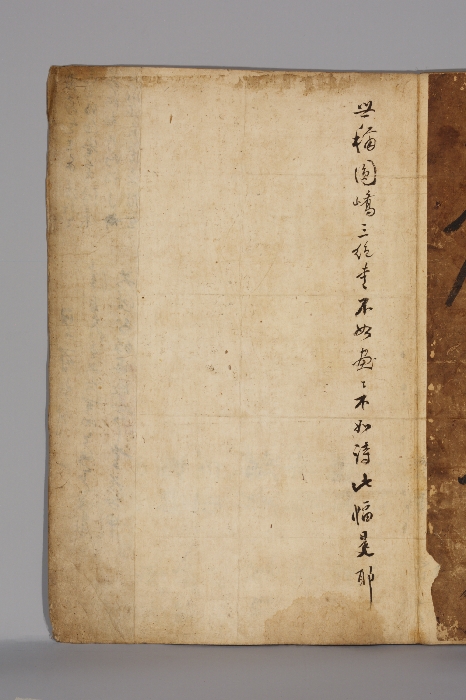 世稱圓嶠三絶書不如畫〻不如詩此幅是耶